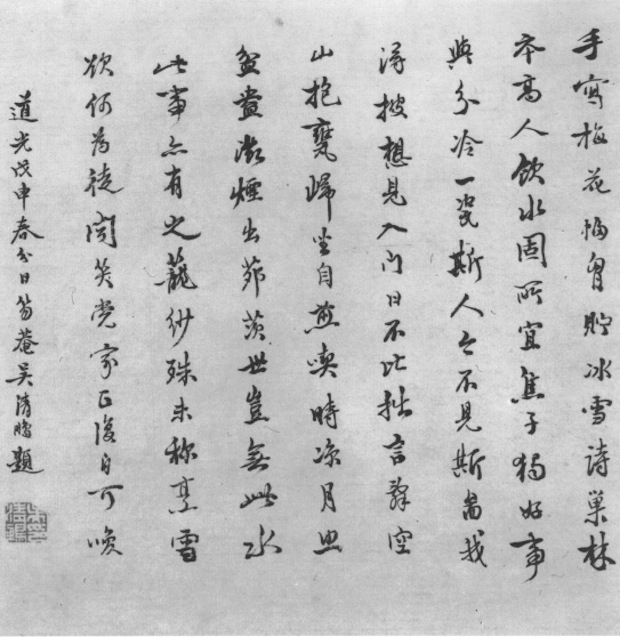 手寫梅花幅胷貯冰雪詩巢林
本高人飲水固所宜焦子獨好事
與分冷一瓷斯人今不見斯畵我
得披想見入門日不比拙言辭空
山抱甕歸坐自煎喫時涼月照
盆盎濕煙出茆茨世豈無此水
此事亦有之蘿紗殊未称烹雪
欲何為徒聞笑党家正復自可嗤
道光戊申春分日笏菴吳清鵬題